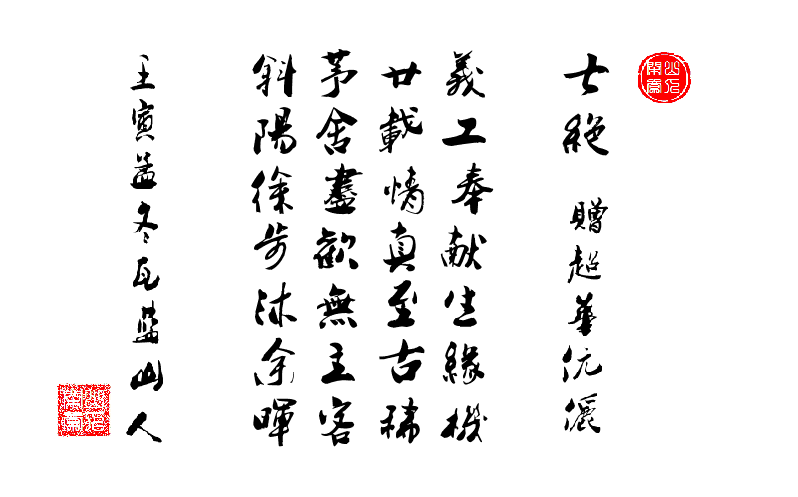 七絕 贈超華伉儷
義工奉献生緣機
廿載情真至古稀
茅舍盡歡無主客
斜陽徐步沐余暉
壬寅孟冬瓦藍山人